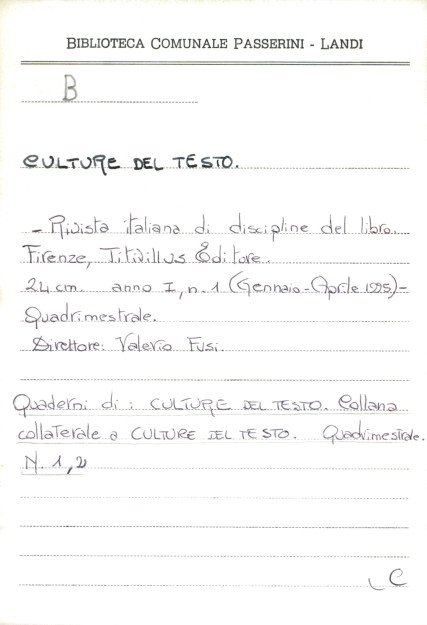 BIBLIOTECA COMUNALE PASSERINI - LANDI
B
CULTURE DEL TESTO.
- Rivista italiana di discipline del libro.
Firenze, Titivillus Editore.
24 cm. anno I, n. 1 (Gennaio-Aprile 1995)-
Quadrimestrale.
Direttore: Valerio Fusi.
Quaderni di: CULTURE DEL TESTO. Collana
collaterale a CULTURE DEL TESTO. Quadrimestrale.
N. 1, 2
C